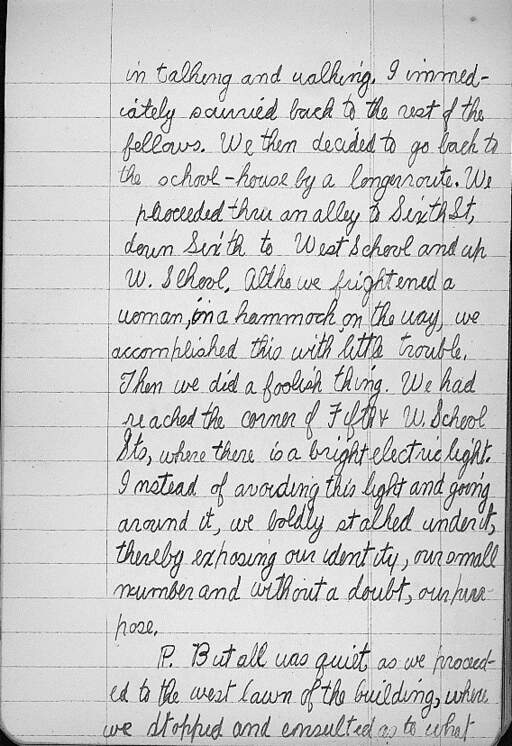 in talking and walking. I immed-
iately scurried back to the rest of the
fellows. We then decided to go back to
the school-house by a longer route. We
proceeded thru an alley to Sixth St,
down Sixth to West School and up
W. School. Altho we frightened a
woman, in a hammock on the way, we
accomplished this with little trouble.
Then we did a foolish thing. We had
reached the corner of Fifth & W. School
Sts, where there is a bright electric light.
Instead of avoiding this light and going
around it, we boldly stalked under it,
thereby exposing our identity, our small
number and without a doubt, our pur-
pose.
P. But all was quiet, as we proceed-
ed to the west lawn of the building, where
we stopped and consulted as to what